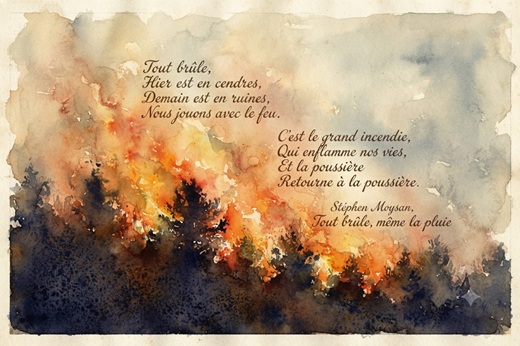 Tout brûle,
Hier est en cendres,
Demain est en ruines,
Nous jouons avec le feu.
C'est le grand incendie,
Qui enflamme nos vies,
Et la poussière
Retourne à la poussière.
Stéphen Moysan,
Tout brûle, même la pluie